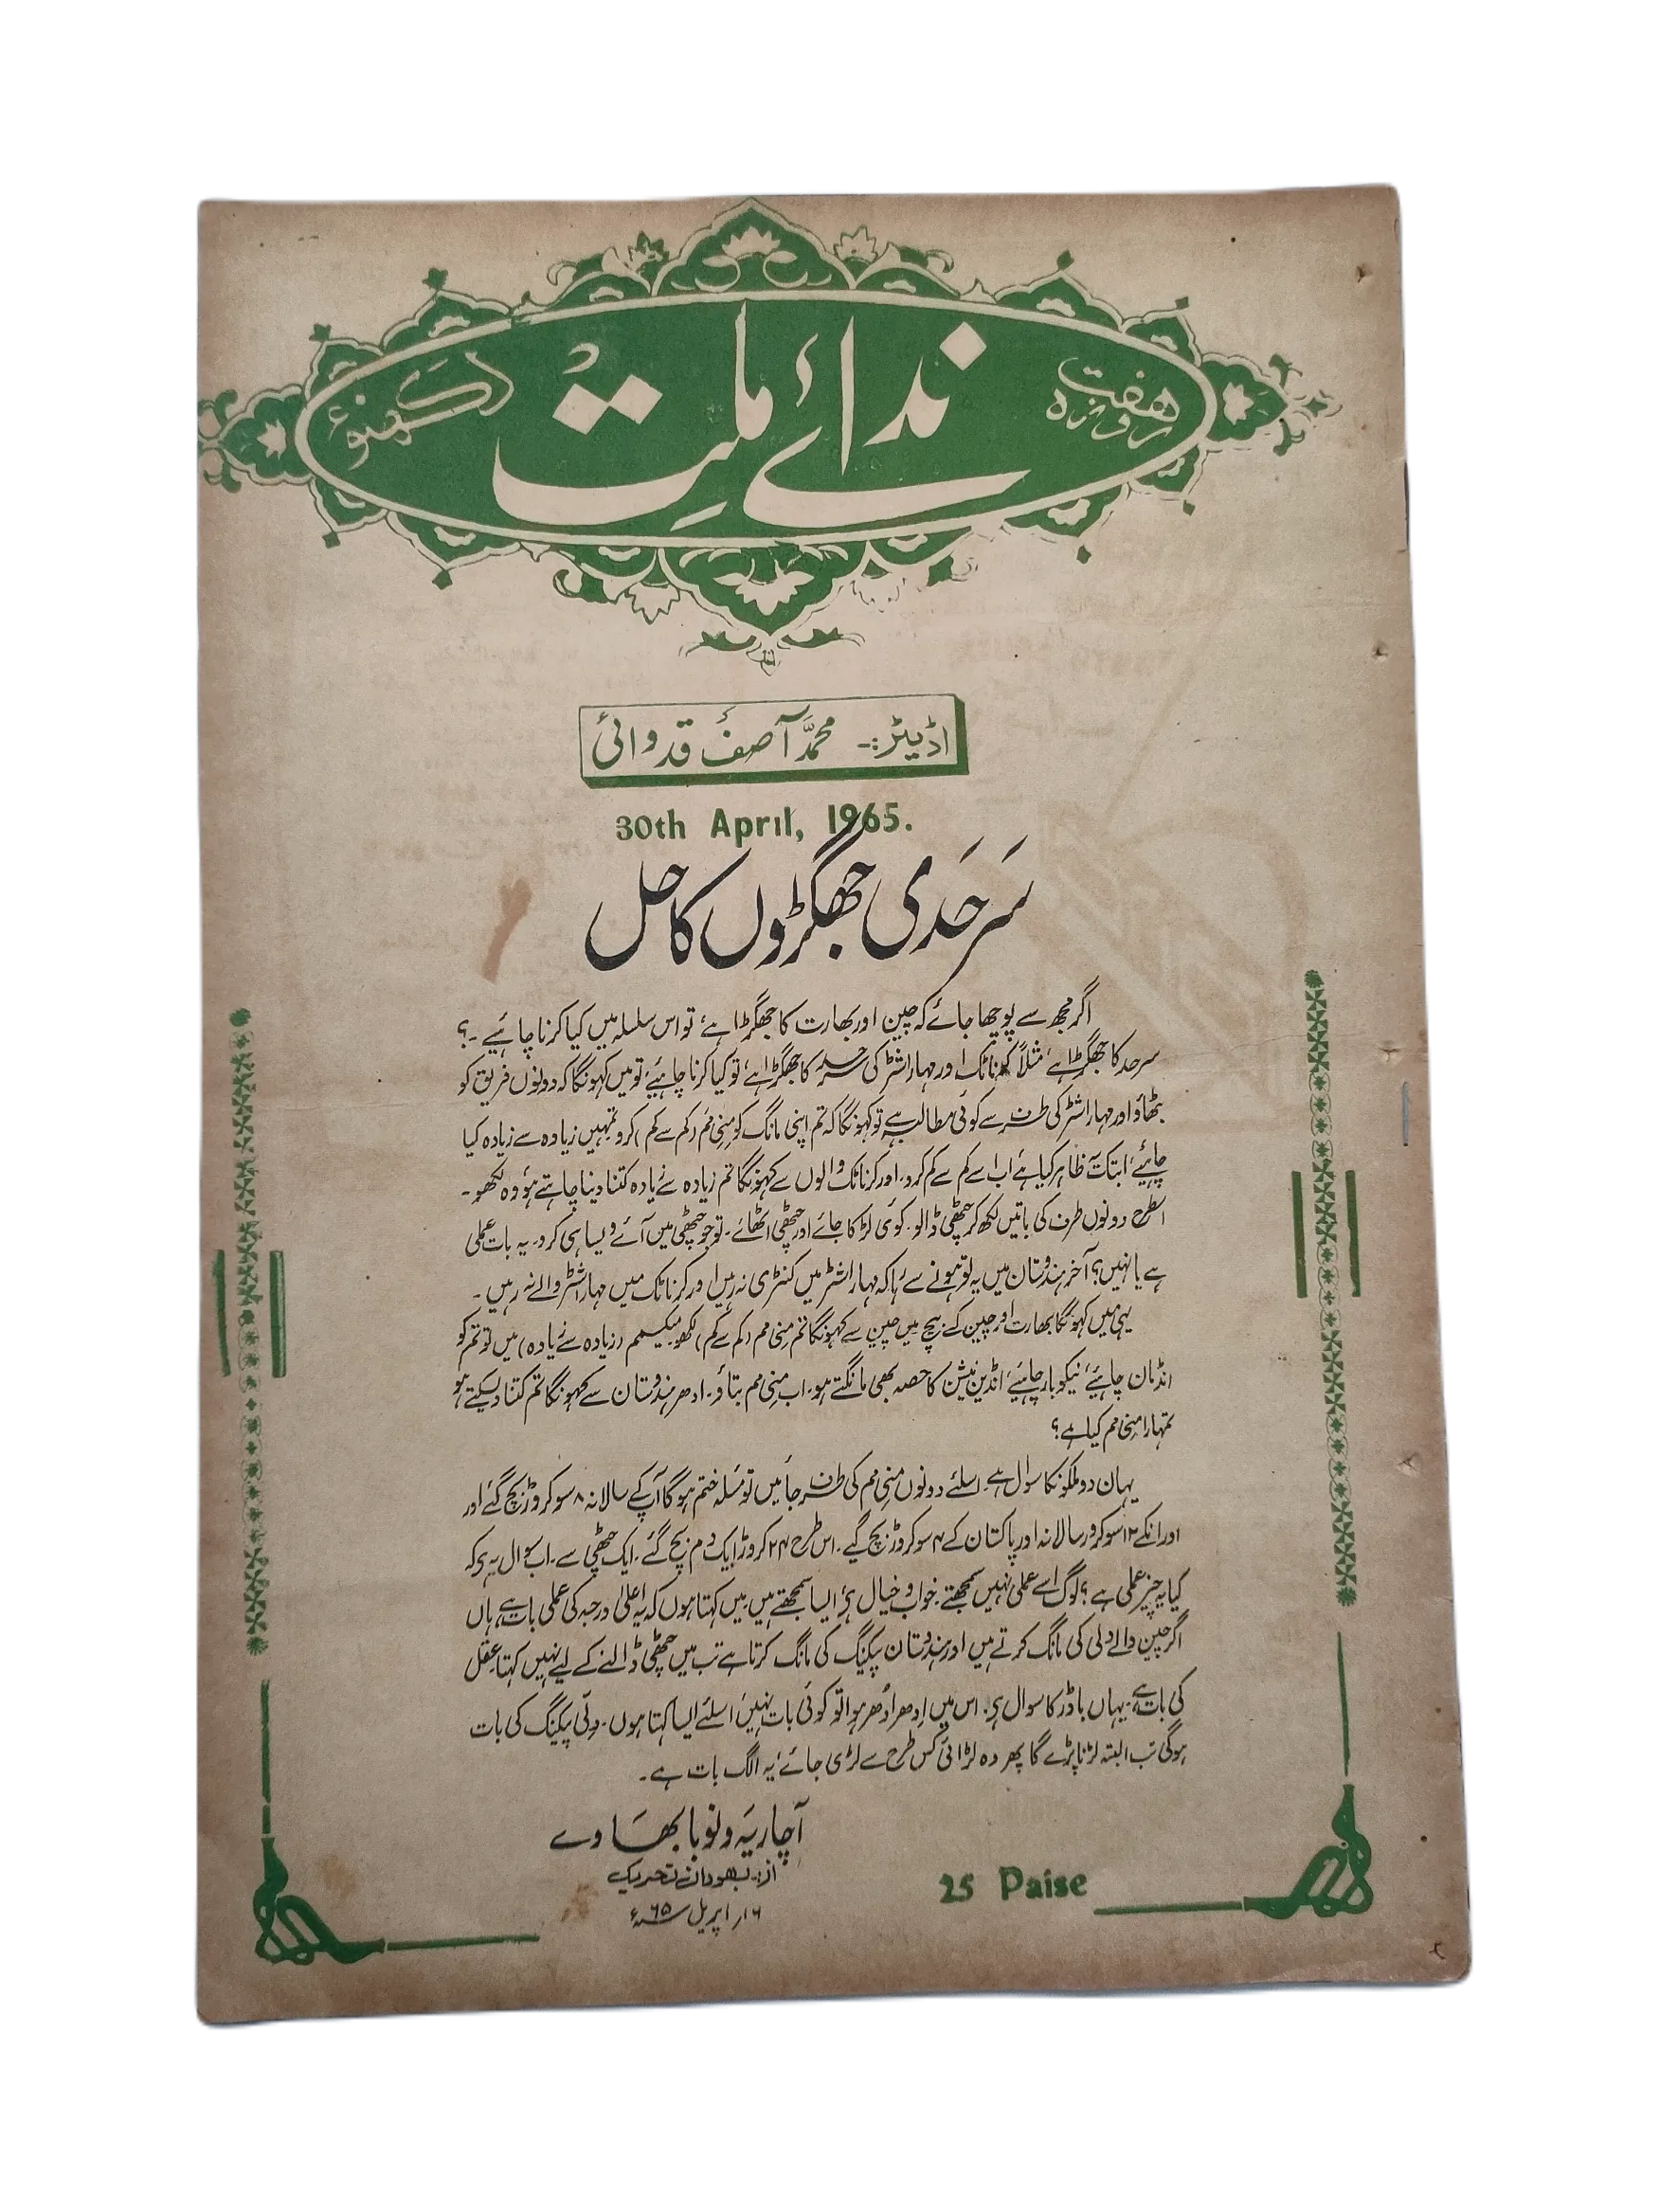 ہفت روزہ
ندائے ملت
لکھنؤ
اڈیٹر:- محمد آصف قدوائی
30th April, 1965.
سرحدی جھگڑوں کا حل
اگر مجھ سے پوچھا جائے کہ چین اور بھارت کا جھگڑا ہے تو اس سلسلہ میں کیا کرنا چاہیے ۔؟
سرحد کا جھگڑا ہے، مثلاً کرناٹک اور مہاراشٹر کی سرحد کا جھگڑا ہے، تو کیا کرنا چاہیئے، تو میں کہونگا کہ دونوں فریق کو
بٹھاؤ اور مہاراشٹر کی طرف سے کوئی مطالبہ ہے تو کہونگا کہ تم اپنی مانگ کو منی مم (کم سے کم) کرو تمہیں زیادہ سے زیادہ کیا
چاہیئے، ابتک یہ ظاہر کیا ہے اب اسے کم سے کم کرو، اور کرناٹک والوں سے کہونگا تم زیادہ سے زیادہ کتنا دینا چاہتے ہو، وہ لکھو۔
اسطرح دونوں طرف کی باتیں لکھ کر چٹھی ڈالو۔ کوئی لڑکا جائے اور چٹھی اٹھائے۔ تو جو چٹھی میں آئے ویسا ہی کرو۔ یہ بات عملی
ہے یا نہیں؟ آخر ہندوستان میں یہ تو ہونے سے رہا کہ مہاراشٹر میں کنٹری نہ رہیں اور کرناٹک میں مہاراشٹر والے نہ رہیں۔
یہی میں کہونگا بھارت اور چین کے بیچ میں چین سے کہونگا تم منی مم (کم سے کم) لکھو میکسیمم (زیادہ سے زیادہ) میں تو تم کو
انڈمان چاہیئے، نیکوبار چاہیئے، انڈین نیشن کا حصہ بھی مانگتے ہو۔ اب منی مم بتاؤ۔ ادھر ہندوستان سے کہونگا تم کتنا دیسکتے ہو
تمہارا منی مم کیا ہے؟
یہاں دو ملکونکا سوال ہے اسلئے دونوں منی مم کی طرف جائیں تو مسئلہ ختم ہوگا آپکے سالانہ ۸ سو کروڑ بچ گئے اور
اور انکے ۱۲ سو کروڑ سالانہ اور پاکستان کے ۴ سو کروڑ بچ گئے۔ اس طرح ۲۴ کروڑ ایک دم بچ گئے۔ ایک چٹھی سے۔ اب سوال یہ ہے کہ
کیا یہ چیز عملی ہے؟ لوگ اسے عملی نہیں سمجھتے خواب و خیال ہے، ایسا سمجھتے ہیں، میں کہتا ہوں کہ یہ اعلیٰ درجہ کی عملی بات ہے، ہاں
اگر چین والے دلی کی مانگ کرتے ہیں اور ہندوستان پیکنگ کی مانگ کرتا ہے تب میں چٹھی ڈالنے کے لیے نہیں کہتا، عقل
کی بات ہے، یہاں باڈر کا سوال ہے، اس میں اِدھر اُدھر ہوا تو کوئی بات نہیں، اسلئے ایسا کہتا ہوں۔ دلی پیکنگ کی بات
ہوگی تب البتہ لڑنا پڑے گا پھر وہ لڑائی کس طرح سے لڑی جائے، یہ الگ بات ہے۔
آچاریہ ونوبا بھاوے
از:۔ بھودان تحریک
۱۶ر اپریل ۶۵ سنہء
25 Paise